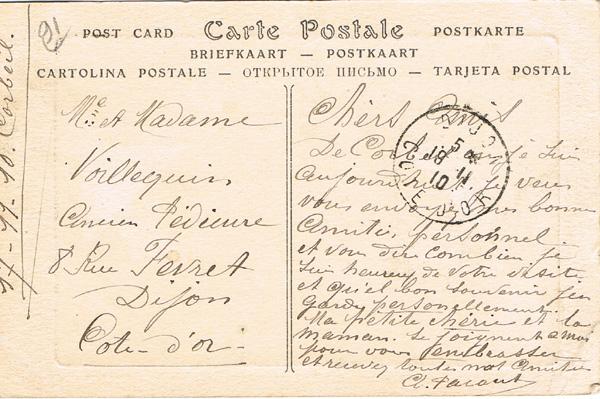 21
POST CARD Carte Postale POSTKARTE
BRIEFKAART — POSTKAART
CARTOLINA POSTALE — ОТКРЫТОЕ ПИСЬМО — TARJETA POSTAL
17-11-10. Corbeil.
Mr et Madame
Voillequin
Ancien Pédicure
8 Rue Fevret
Dijon
Cote-d'or-
Chers Amis
De Corbeil je suis
aujourd'hui je veux
vous envoyer mes bonnes
Amitiés personnel
et vous dire combien je
suis heureux de votre visite
et qu'el bon souvenir j'en
garde personellement.
Ma petite chérie et la
maman. se joignent a moi
pour vous embrasser
et recevez toutes mes Amitiés
DIJON
5
18 11
10
COTE D'OR